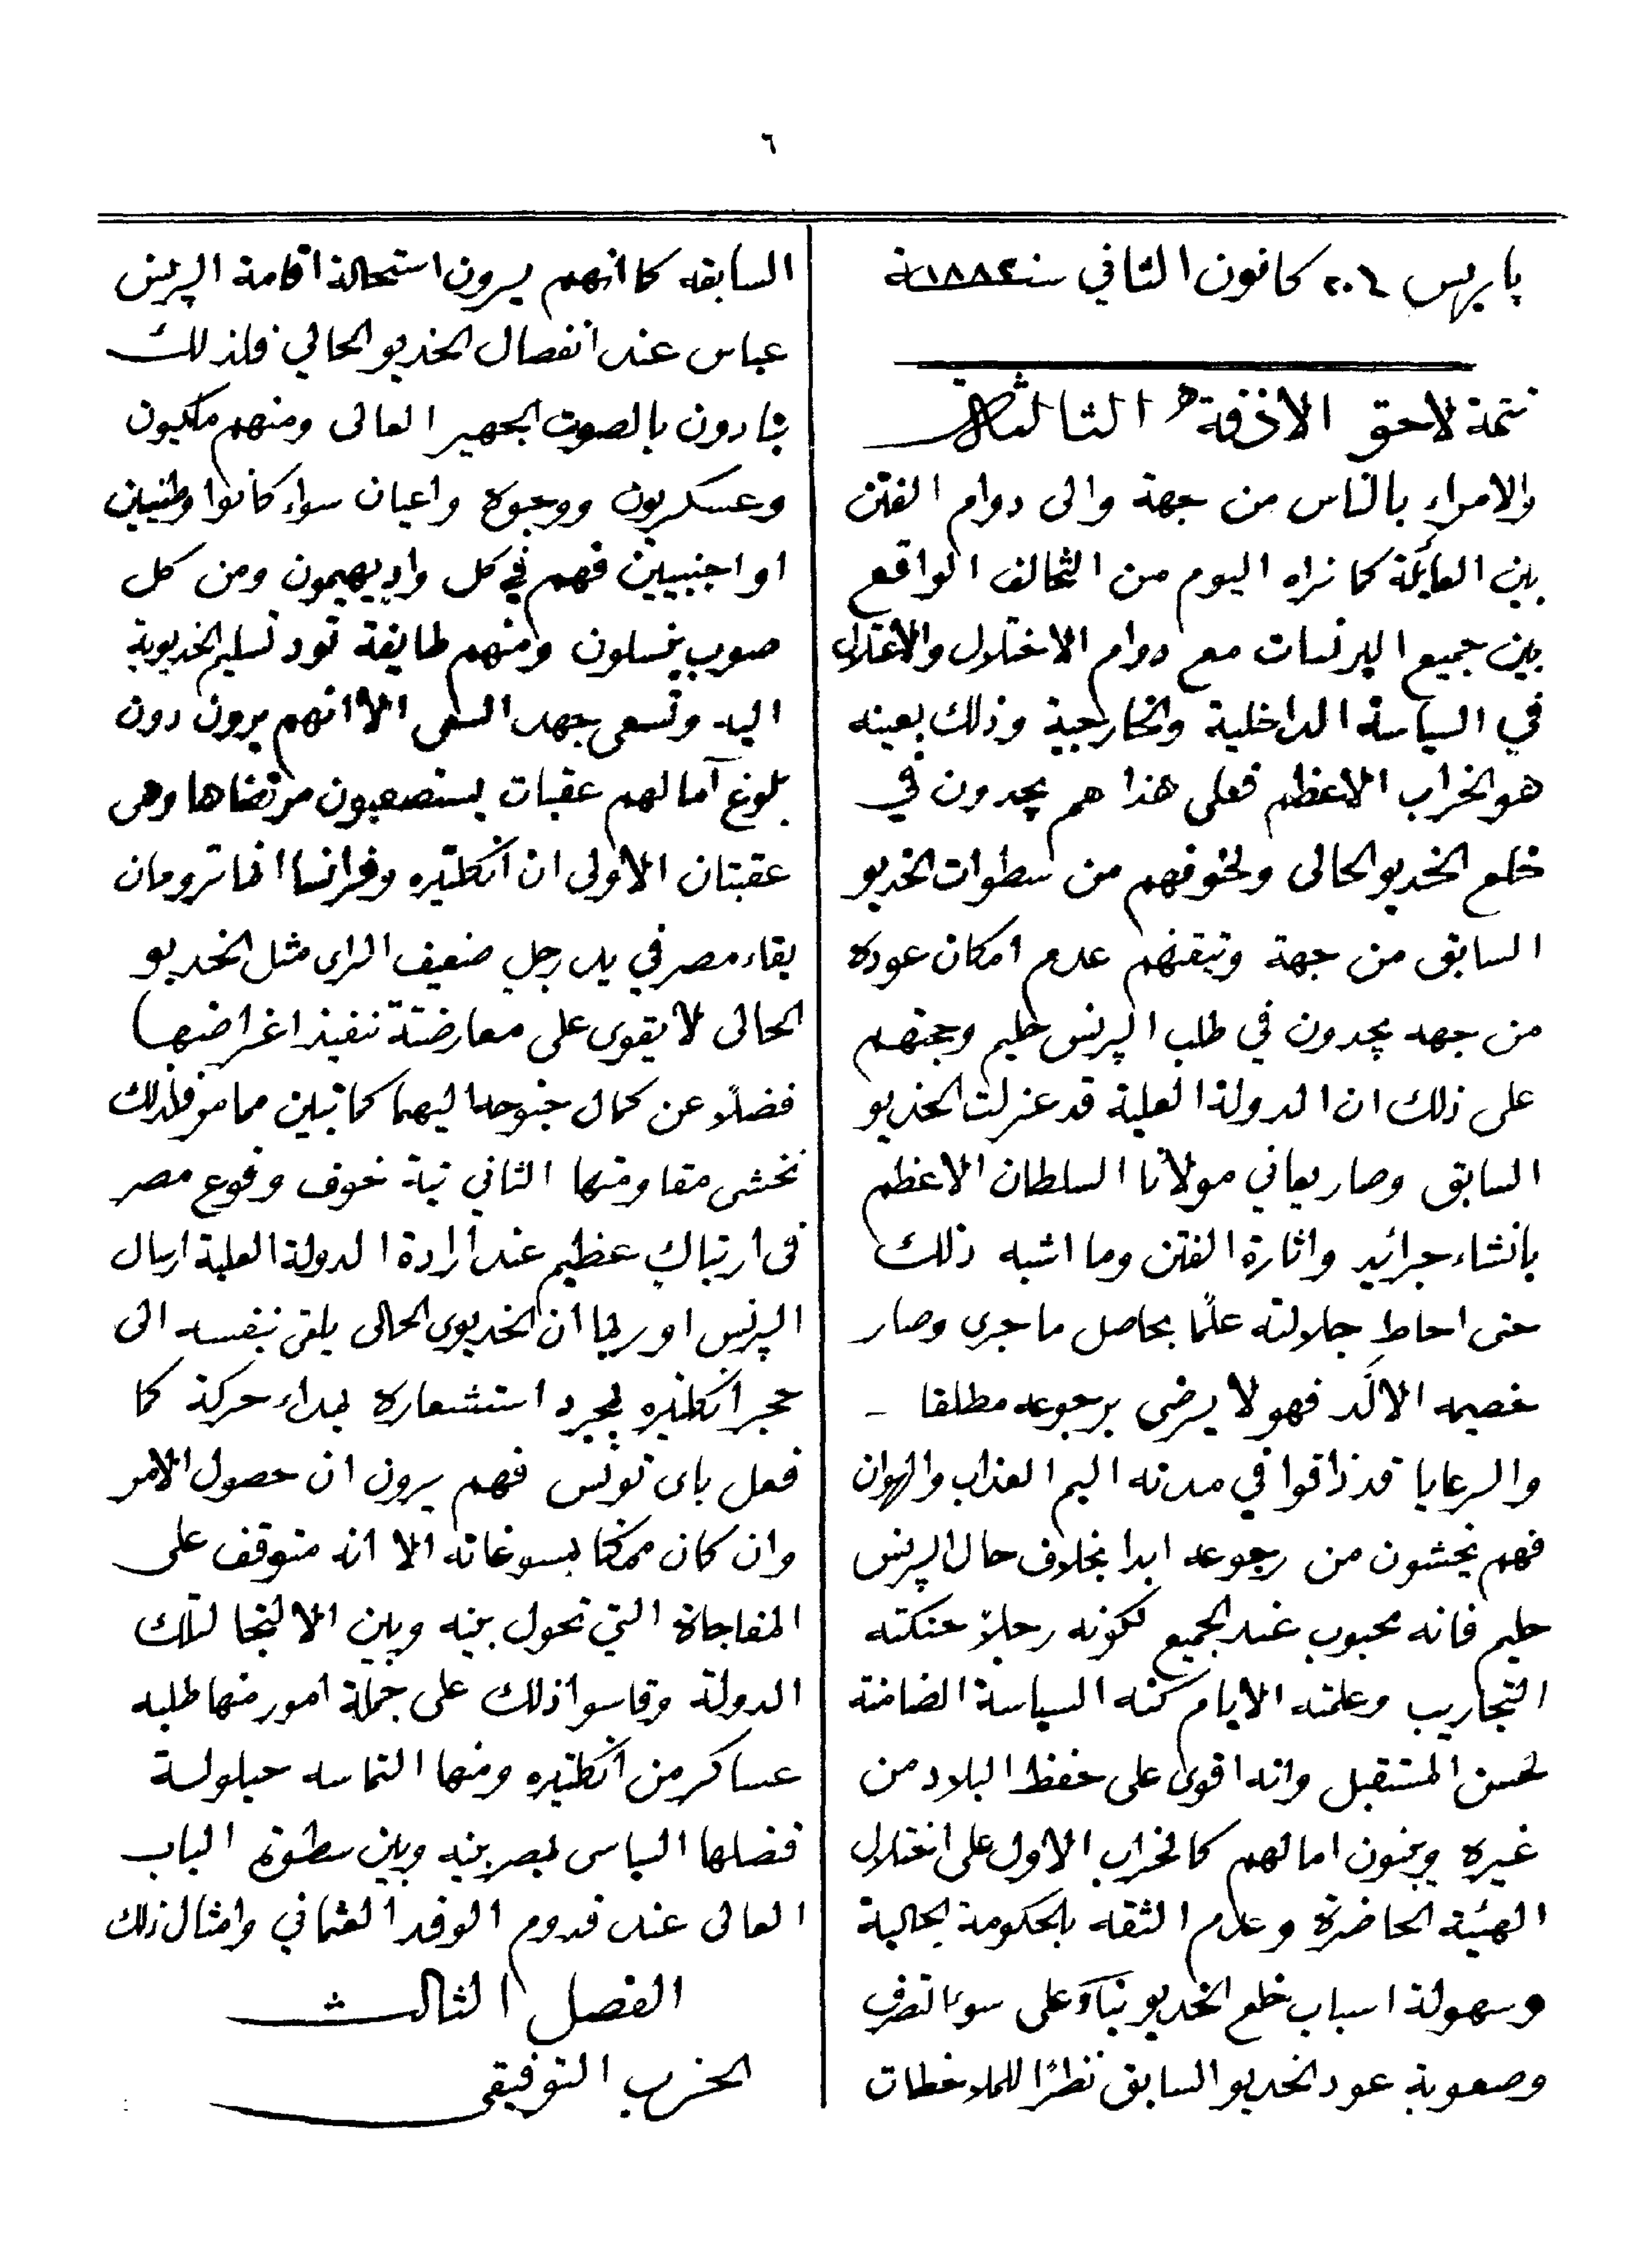 ٦
پاريس ٢٠٦ كانون الثاني سنة ١٨٨٢
تتمة لاحق الازفة الثالثة
والامراء بالناس من جهة والى دوام الفتن
بين العائلة كما نراه اليوم من التخالف الواقع
بين جميع البرنسات مع دوام الاختلال والاعتلال
في السياسة الداخلية والخارجية وذلك بعينه
هو الخراب الاعظم فعلى هذا هم يجدون في
خلع الخديو الحالى ولخوفهم من سطوات الخديو
السابق من جهة وتيقنهم عدم امكان عوده
من جهه يجدون في طلب الپرنس حليم وحجتهم
على ذلك ان الدولة العلية قد عزلت الخديو
السابق وصار يعاني مولانا السلطان الاعظم
بانشاء جرائد واثارة الفتن وما اشبه ذلك
حتى احاط جلالته علمًا بحاصل ماجرى وصار
خصيمه الالَد فهو لا يرضى برجوعه مطلقا -
والرعايا قد ذاقوا في مدته اليم العذاب والهوان
فهم يخشون من رجوعه ابدا بخلاف حال الپرنس
حليم فانه محبوب عند الجميع لكونه رجلاً حنكته
التجاريب وعلمته الايام كنه السياسة الضامنة
لحسن المستقبل وانه اقوى على حفظ البلاد من
غيره ويبنون امالهم كالحزب الاول على اختلال
الهيئة الحاضرة وعدم الثقه بالحكومة الحالية
وسهولة اسباب خلع الخديو بناءً على سوء التصرف
وصعوبة عود الخديو السابق نظرًا للملاحظات
السابقه كما انهم يرون استحالة اقامة الپرنس
عباس عند انفصال الخديو الحالي فلذلك
ينادون بالصوت الجهير العالى ومنهم ملكيون
وعسكريون ووجوه واعيان سواء كانوا وطنيين
او اجنبيين فهم في كل وادٍ يهيمون ومن كل
صوب ينسلون ومنهم طايفة تود تسليم الخديوية
اليه وتسعى جهد السعى الا انهم يرون دون
بلوغ آمالهم عقبات يستصعبون مرتقاها وهى
عقبتان الاولى ان انكلتيره وفرانسا انما ترومان
بقاء مصر في يد رجل ضعيف الراى مثل الخديو
الحالى لا يقوى على معارضتة تنفيذ اغراضهما
فضلاً عن كمال جنوحه اليهما كما تبين مما مر فلذلك
نخشى مقاومتها الثاني نية خوف وقوع مصر
فى ارتباك عظيم عند ارادة الدولة العلية ارسال
الپرنس او ربما ان الخديوى الحالى يلقى بنفسه الى
حجر انكلتيره لمجرد استشعاره بمبداء حركة كما
فعل باى تونس فهم يرون ان حصول الامر
وان كان ممكنا بمسوغاته الا انه متوقف على
المفاجاة التي تحول بينه وبين الالتجا لتلك
الدولة وقاسوا ذلك على جملة امور منها طلبه
عساكر من انكلتيره ومنها التماسه حيلولة
قنصلها السياسى بمصر بينه وبين سطوة الباب
العالى عند قدوم الوفد العثماني وامثال ذلك
الفصل الثالث
الحزب التوفيقى